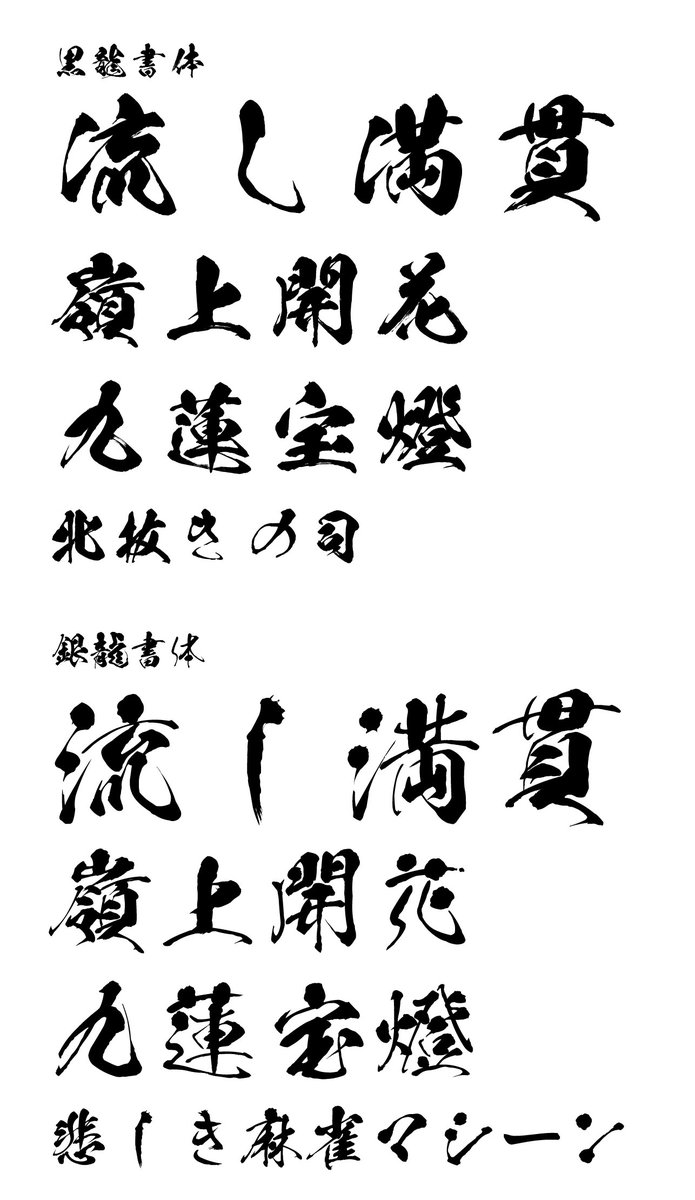 黒龍書体
流し満貫
嶺上開花
九蓮宝燈
北抜きの司
銀龍書体
流し満貫
嶺上開花
九蓮宝燈
悲しき麻雀マシーン